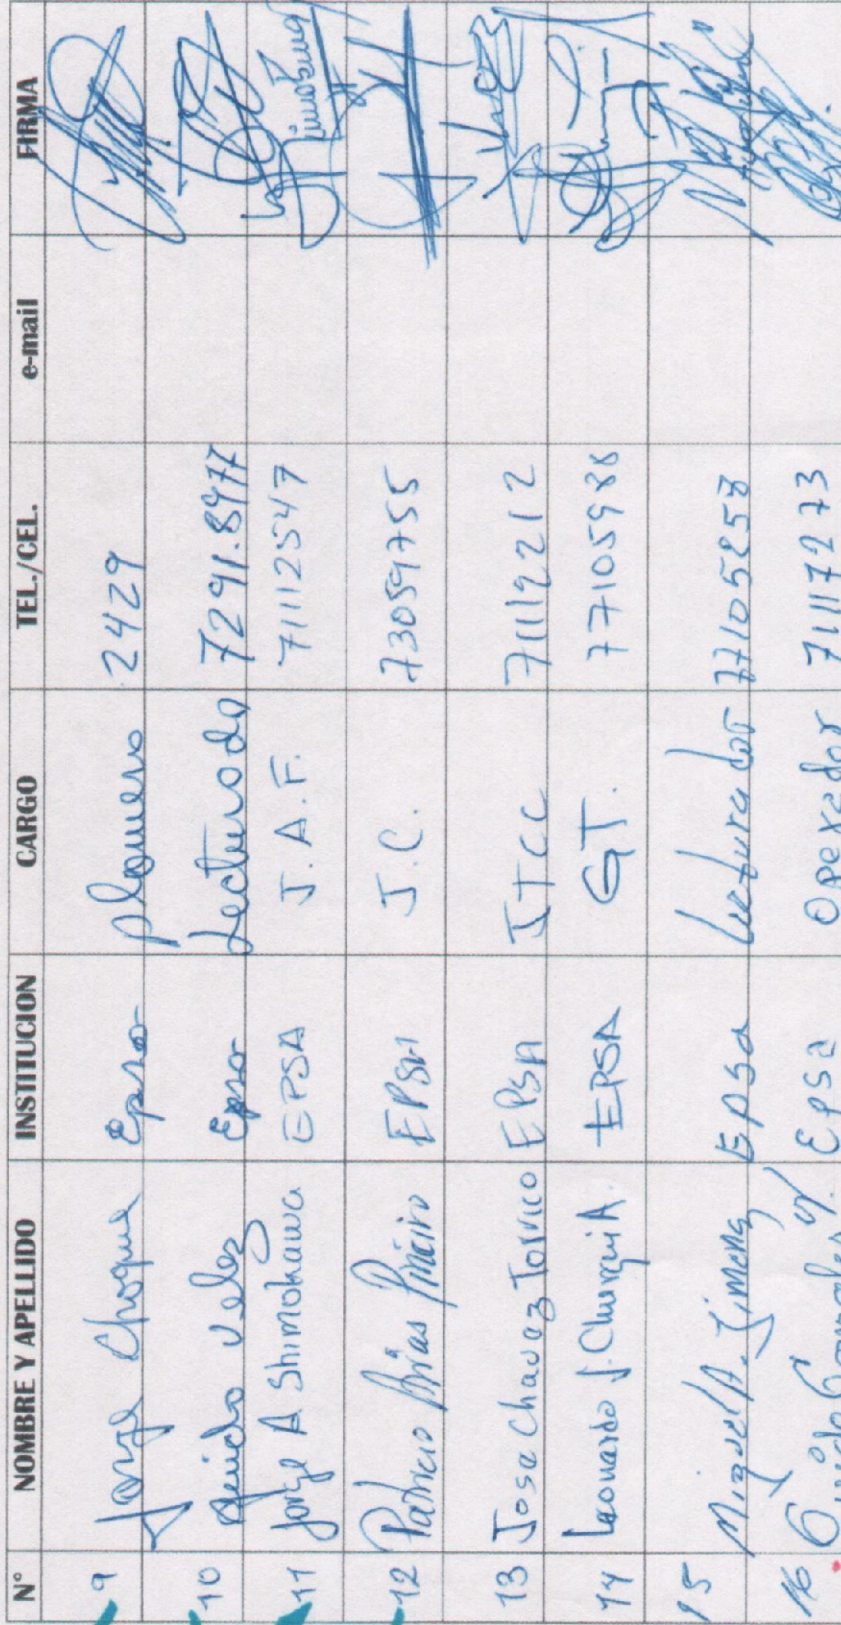 N° NOMBRE Y APELLIDO INSTITUCION CARGO TEL./CEL. e-mail FIRMA
9 Jorge Choque Epsa plomero 2429
10 Velez Epsa Lecturado 7291.8977
11 Jorge A Shimokawa EPSA J.A.F. 71112547
12 Patricio Arias Piñeiro EPSA J.C. 73059755
13 Jose Chavez Torrico EPSA JTCC 71119212
14 Leonardo J. Churqui A. EPSA GT. 77105988
15 Miguel A. Jimenez Epsa Lecturador 77105258
16 Epsa Operador 71117273